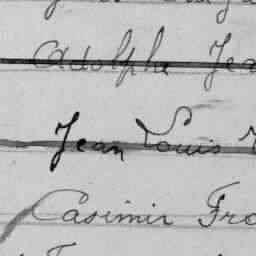 Adolphe Jea
Jean Louis
Casimir Fra